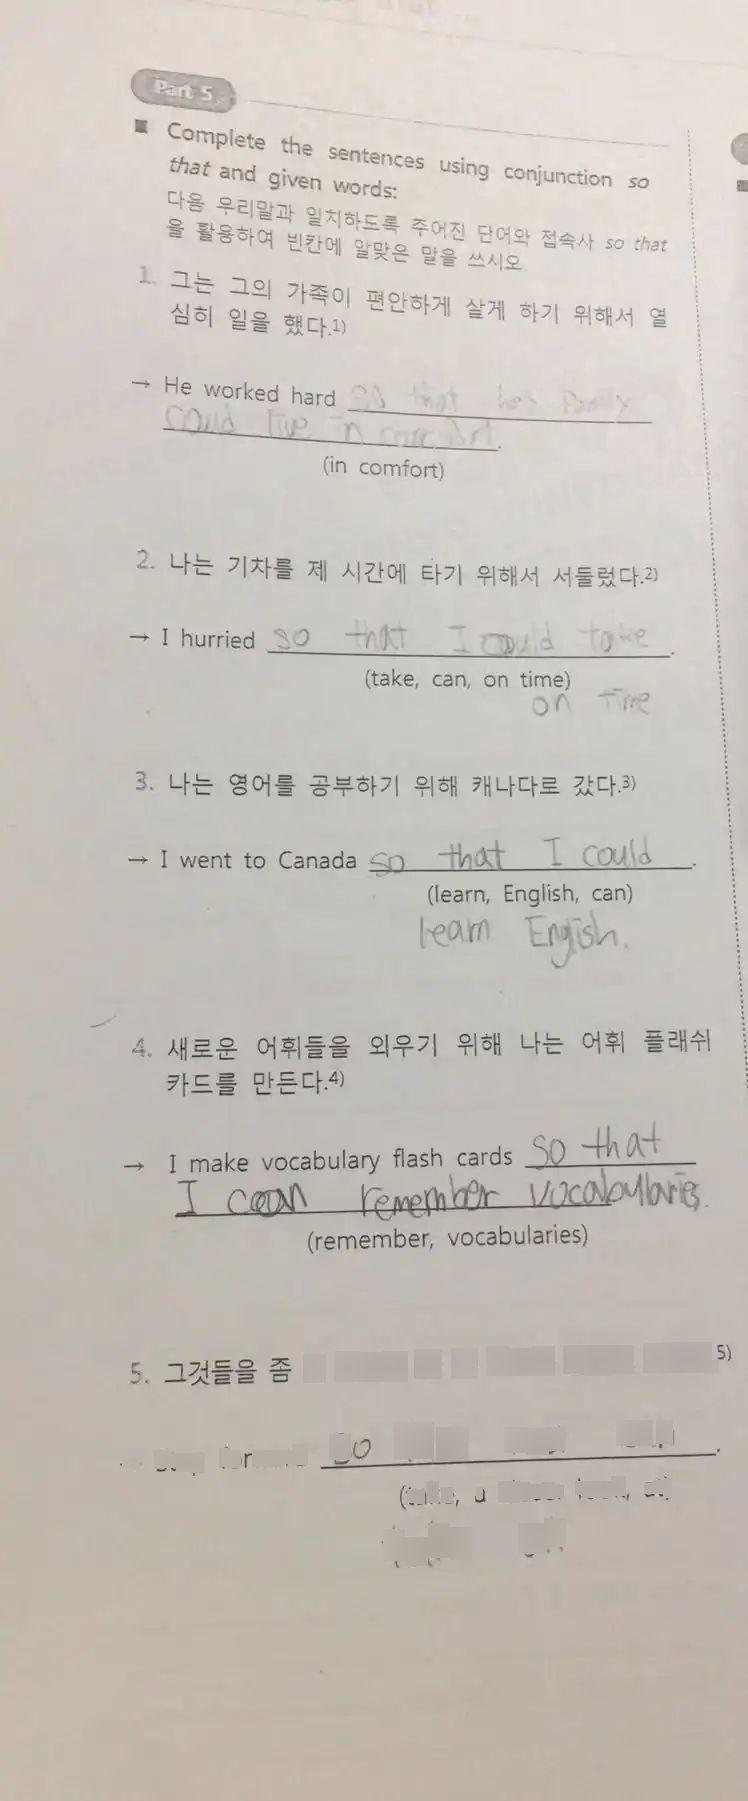 Part 5
■ Complete the sentences using conjunction so
that and given words:
다음 우리말과 일치하도록 주어진 단어와 접속사 so that
을 활용하여 빈칸에 알맞은 말을 쓰시오
1. 그는 그의 가족이 편안하게 살게 하기 위해서 열
심히 일을 했다.1)
→ He worked hard so that his family
could live in comfort.
(in comfort)
2. 나는 기차를 제 시간에 타기 위해서 서둘렀다.2)
→ I hurried so that I could take.
(take, can, on time)
on time
3. 나는 영어를 공부하기 위해 캐나다로 갔다.3)
→ I went to Canada so that I could.
(learn, English, can)
learn Engish.
4. 새로운 어휘들을 외우기 위해 나는 어휘 플래쉬
카드를 만든다.4)
→ I make vocabulary flash cards so that
I can remember vocabularies.
(remember, vocabularies)
5. 그것들을 좀 5)
so